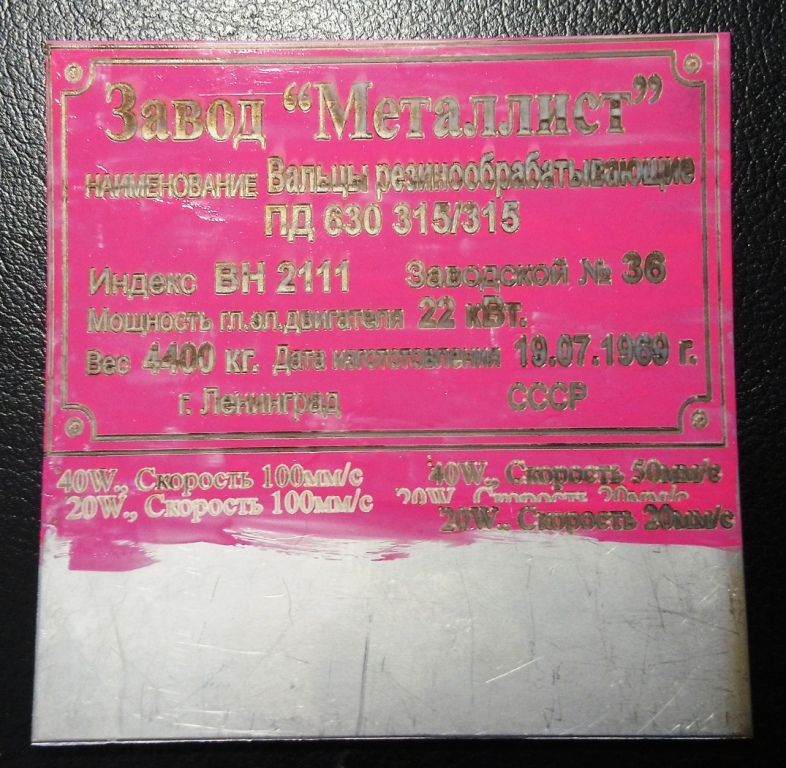 Завод “Металлист”
НАИМЕНОВАНИЕ Вальцы резинообрабатывающие
ПД 630 315/315
Индекс ВН 2111 Заводской № 36
Мощность гл.эл.двигателя 22 кВт.
Вес 4400 кг. Дата изгототовления 19.07.1969 г.
г. Ленинград СССР
40W., Скорость 100мм/с 40W., Скорость 50мм/с
20W., Скорость 100мм/с 20W., Скорость 20мм/с
20W., Скорость 20мм/с